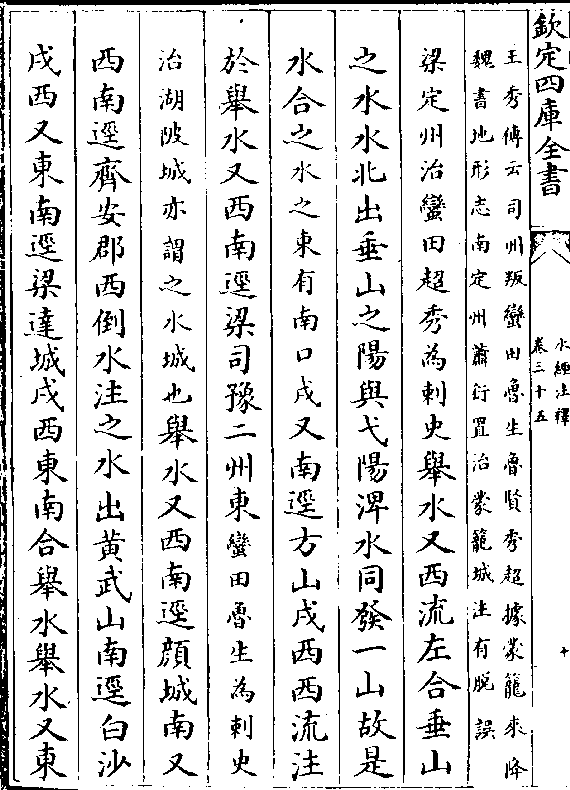 欽定四庫全書
水經注釋
卷三十五
十
王秀傳云司州叛蠻田魯生魯賢秀超據蒙籠來降
魏書地形志南定州蕭衍置治蒙籠城注有脫誤
梁定州治蠻田超秀為刺史舉水又西流左合垂山
之水水北出垂山之陽與弋陽渒水同發一山故是
水合之水之東有南口戍又南逕方山戍西西流注
於舉水又西南逕梁司豫二州東蠻田魯生為刺史
治湖陂城亦謂之水城也舉水又西南逕顔城南又
西南逕齊安郡西倒水注之水出黄武山南逕白沙
戍西又東南逕梁達城戍西東南合舉水舉水又東